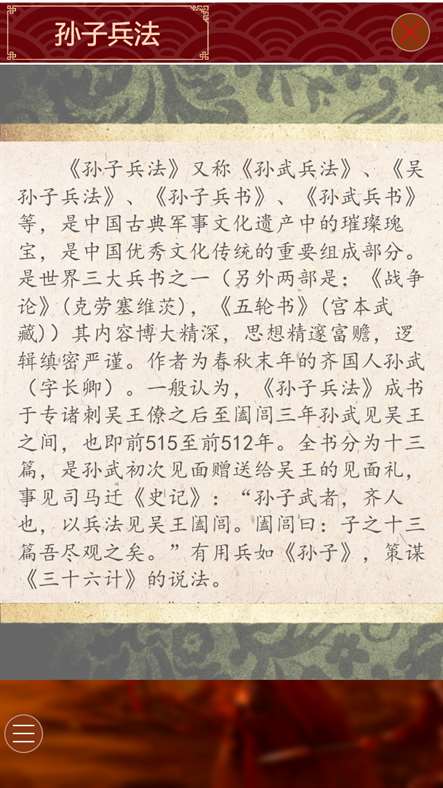 孙子兵法
《孙子兵法》又称《孙武兵法》、《吴
孙子兵法》、《孙子兵书》、《孙武兵书》
等，是中国古典军事文化遗产中的璀璨瑰
宝，是中国优秀文化传统的重要组成部分。
是世界三大兵书之一（另外两部是：《战争
论》(克劳塞维茨)，《五轮书》(宫本武
藏)）其内容博大精深，思想精邃富赡，逻
辑缜密严谨。作者为春秋末年的齐国人孙武
（字长卿）。一般认为，《孙子兵法》成书
于专诸刺吴王僚之后至阖闾三年孙武见吴王
之间，也即前515至前512年。全书分为十三
篇，是孙武初次见面赠送给吴王的见面礼，
事见司马迁《史记》：“孙子武者，齐人
也，以兵法见吴王阖闾。阖闾曰：子之十三
篇吾尽观之矣。”有用兵如《孙子》，策谋
《三十六计》的说法。